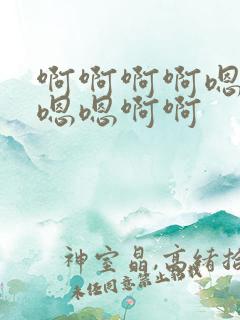 啊啊啊啊嗯
嗯嗯啊啊
神室晶,高绪拾
未任同意禁止转载